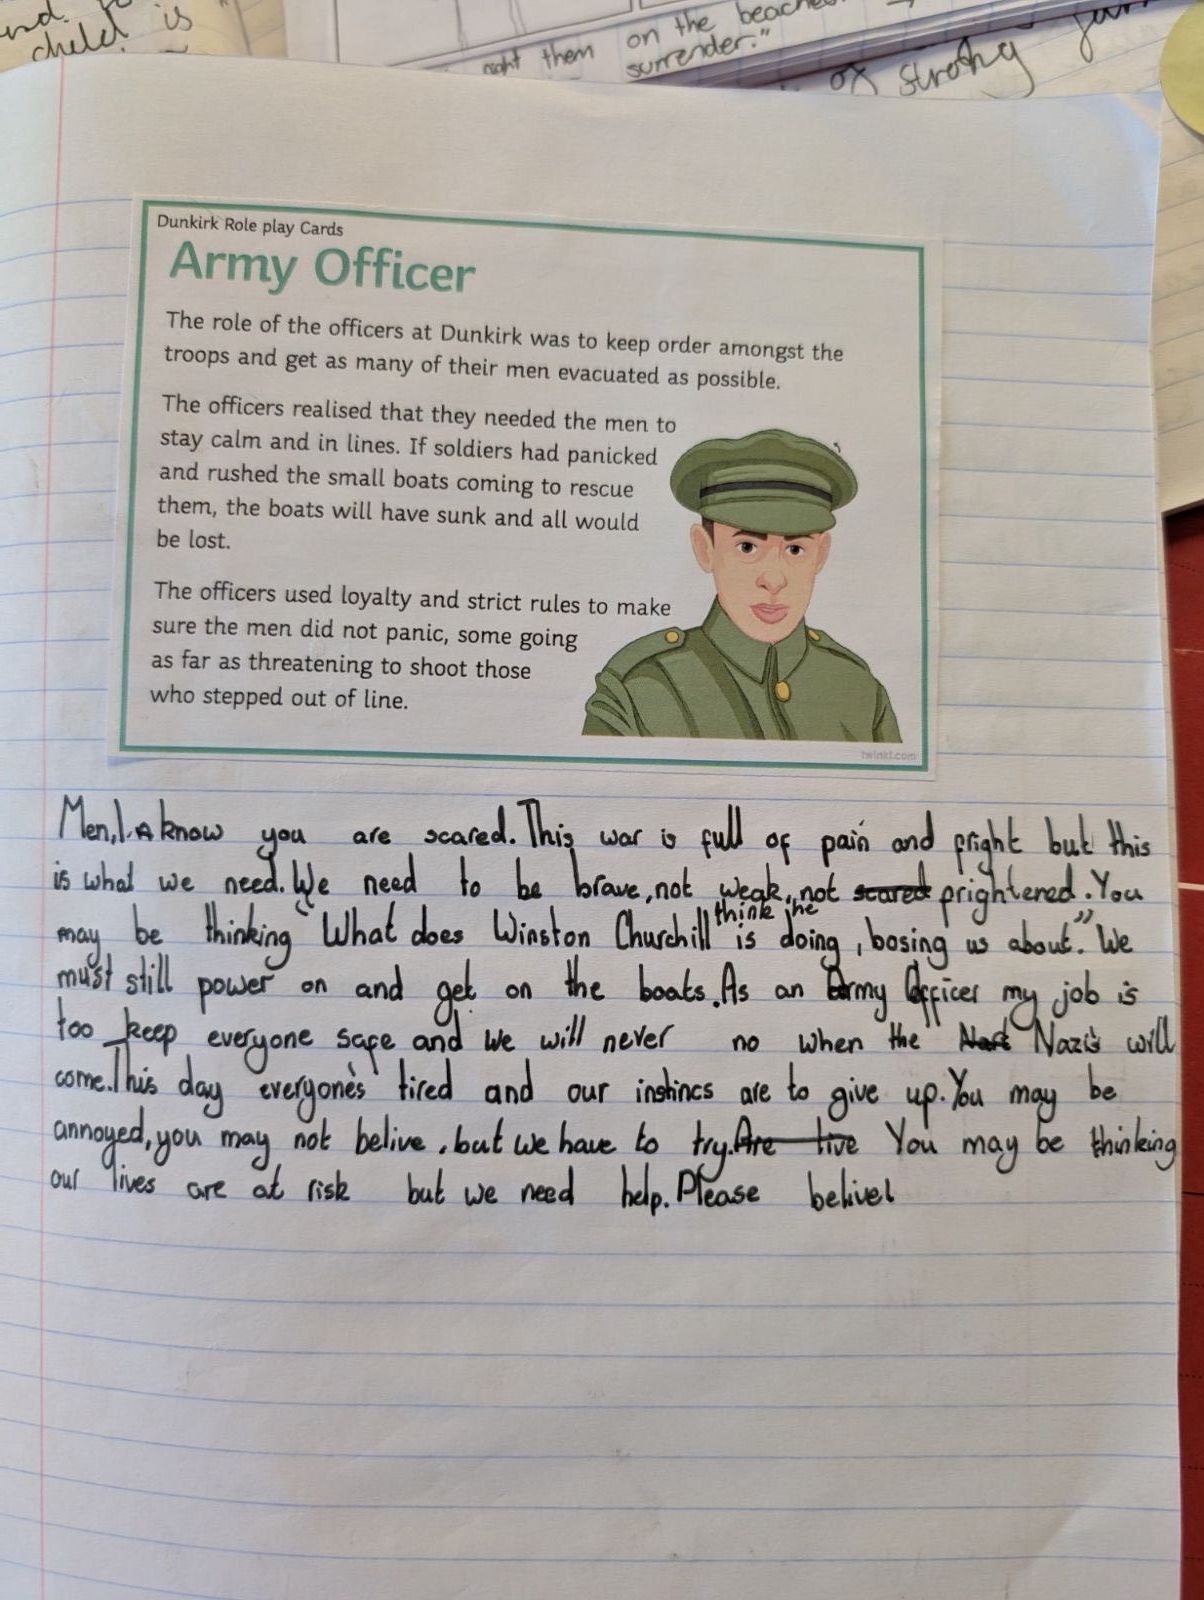 child is
them on the
surrender."
strong
Dunkirk Role play Cards
Army Officer
The role of the officers at Dunkirk was to keep order amongst the
troops and get as many of their men evacuated as possible.
The officers realised that they needed the men to
stay calm and in lines. If soldiers had panicked
and rushed the small boats coming to rescue
them, the boats will have sunk and all would
be lost.
The officers used loyalty and strict rules to make
sure the men did not panic, some going
as far as threatening to shoot those
who stepped out of line.
twinkl.com
Men, I know you are scared. This war is full of pain and fright but this
is what we need. We need to be brave, not weak, not scared prightered. You
think he
may be thinking "What does Winston Churchill is doing, bosing us about." We
must still power on and get on the boats. As an Army Officer my job is
too keep everyone safe and we will never no when the Nazi's will
come. This day everyone's tired and our instincs are to give up. You may be
annoyed, you may not belive, but we have to try. Are live You may be thinking
our lives are at risk but we need help. Please belive!